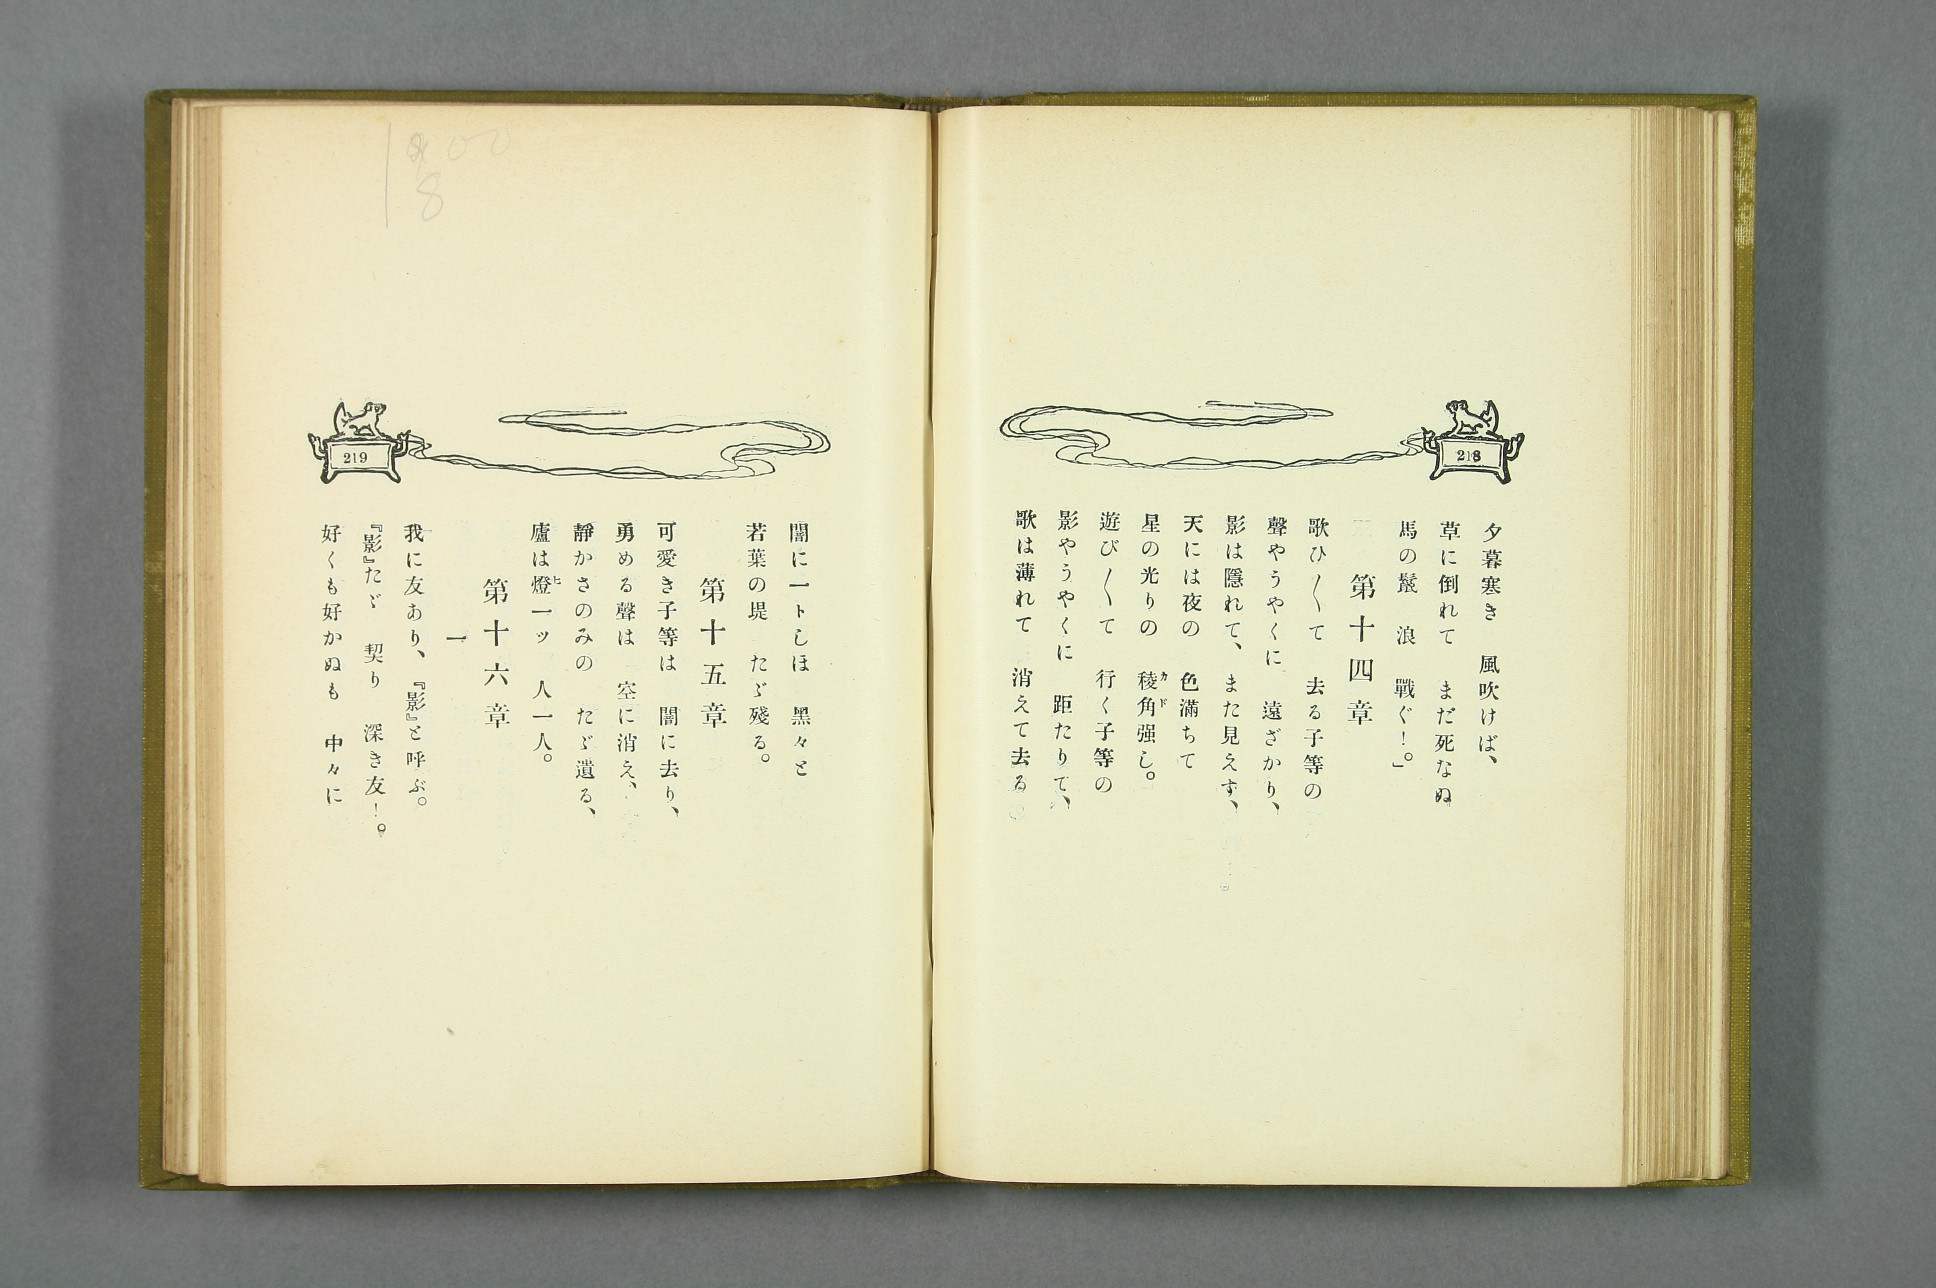 218
夕暮寒き　風吹けば、
草に倒れて　まだ死なぬ
馬の鬣　浪　戰ぐ！。」
第十四章
歌ひ〳〵て　去る子等の
聲やうやくに　遠ざかり、
影は隱れて、また見えず、
天には夜の　色滿ちて
星の光りの　稜角强し。
カド
遊び〳〵て　行く子等の
影やうやくに　距たりて、
歌は薄れて　消えて去る。
219
闇に一トしほ　黑々と
若葉の堤　たゞ殘る。
第十五章
可愛き子等は　闇に去り、
勇める聲は　空に消え、
靜かさのみの　たゞ遺る、
廬は燈一ッ　人一人。
ヒ
第十六章
一
我に友あり、『影』と呼ぶ。
『影』たゞ　契り　深き友！。
好くも好かぬも　中々に